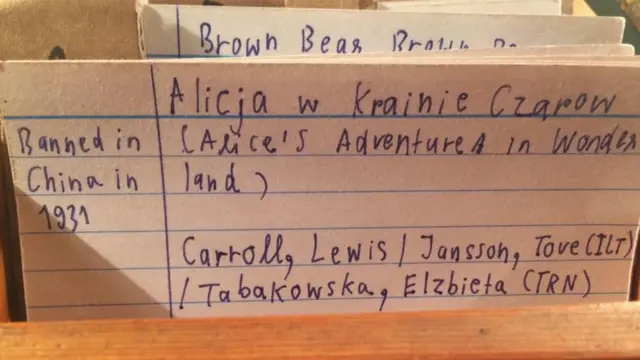 Brown Bear Brown
Alicja w Krainie Czarow
Banned in
China in
1931
(Alice's Adventures in Wonder
land)
Carroll, Lewis / Jansson, Tove (ILT)
/ Tabakowska, Elzbieta (TRN)